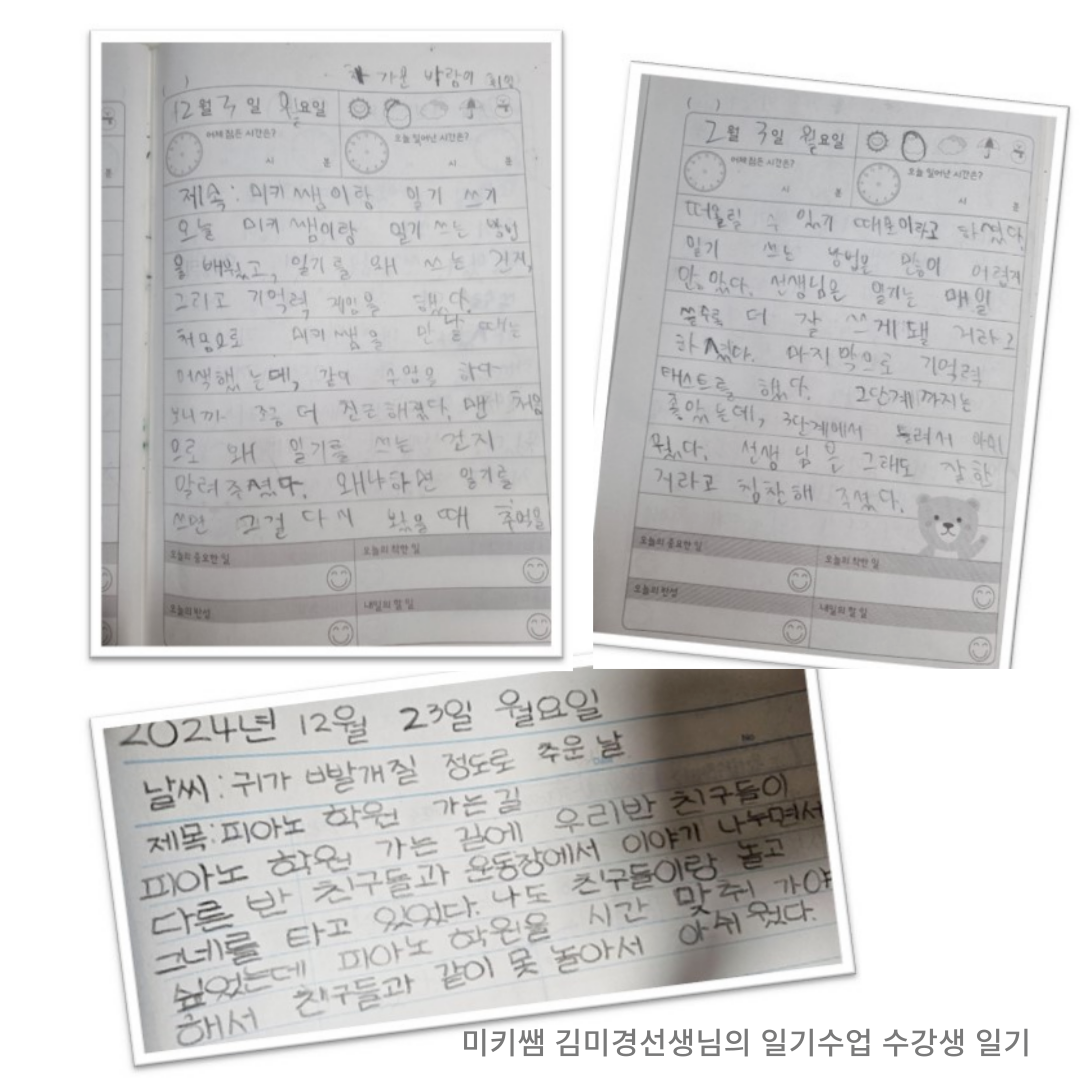 차가운 바람이
( )
12월 3일 월요일
어제 잠든 시간은?
오늘 일어난 시간은?
시 분
시 분
제속: 미키쌤이랑 일기 쓰기
오늘 미키쌤이랑 일기 쓰는 방법
을 배웠고, 일기를 왜 쓰는 건지,
그리고 기억력 게임을 했다.
처음으로 미키쌤을 만날 때는
어색했는데, 같이 수업을 하다
보니까 조금 더 친근해졌다. 맨 처음
으로 왜 일기를 쓰는 건지
알려주셨다. 왜냐하면 일기를
쓰면 그걸 다시 봤을 때 추억을
오늘의 중요한 일
오늘의 착한 일
오늘의 반성
내일의 할 일
( )
2월 3일 월요일
어제 잠든 시간은?
오늘 일어난 시간은?
시 분
시 분
떠올릴 수 있기 때문이라고 하셨다.
일기 쓰는 방법은 많이 어렵게
않았다. 선생님은 일기는 매일
쓸수록 더 잘 쓰게 될 거라고
하셨다. 마지막으로 기억력
테스트를 했다. 2단계까지는
좋았는데, 3단계에서 틀려서 아쉬
웠다. 선생님은 그래도 잘한
거라고 칭찬해 주셨다.
오늘의 중요한 일
오늘의 착한 일
오늘의 반성
내일의 할 일
2024년 12월 23일 월요일
No
날씨: 귀가 빨개질 정도로 추운 날
제목: 피아노 학원 가는 길
피아노 학원 가는 길에 우리반 친구들이
다른 반 친구들과 운동장에서 이야기 나누면서
그네를 타고 있었다. 나도 친구들이랑 놀고
싶었는데 피아노 학원을 시간 맞춰 가야
해서 친구들과 같이 못 놀아서 아쉬웠다.
미키쌤 김미경선생님의 일기수업 수강생 일기